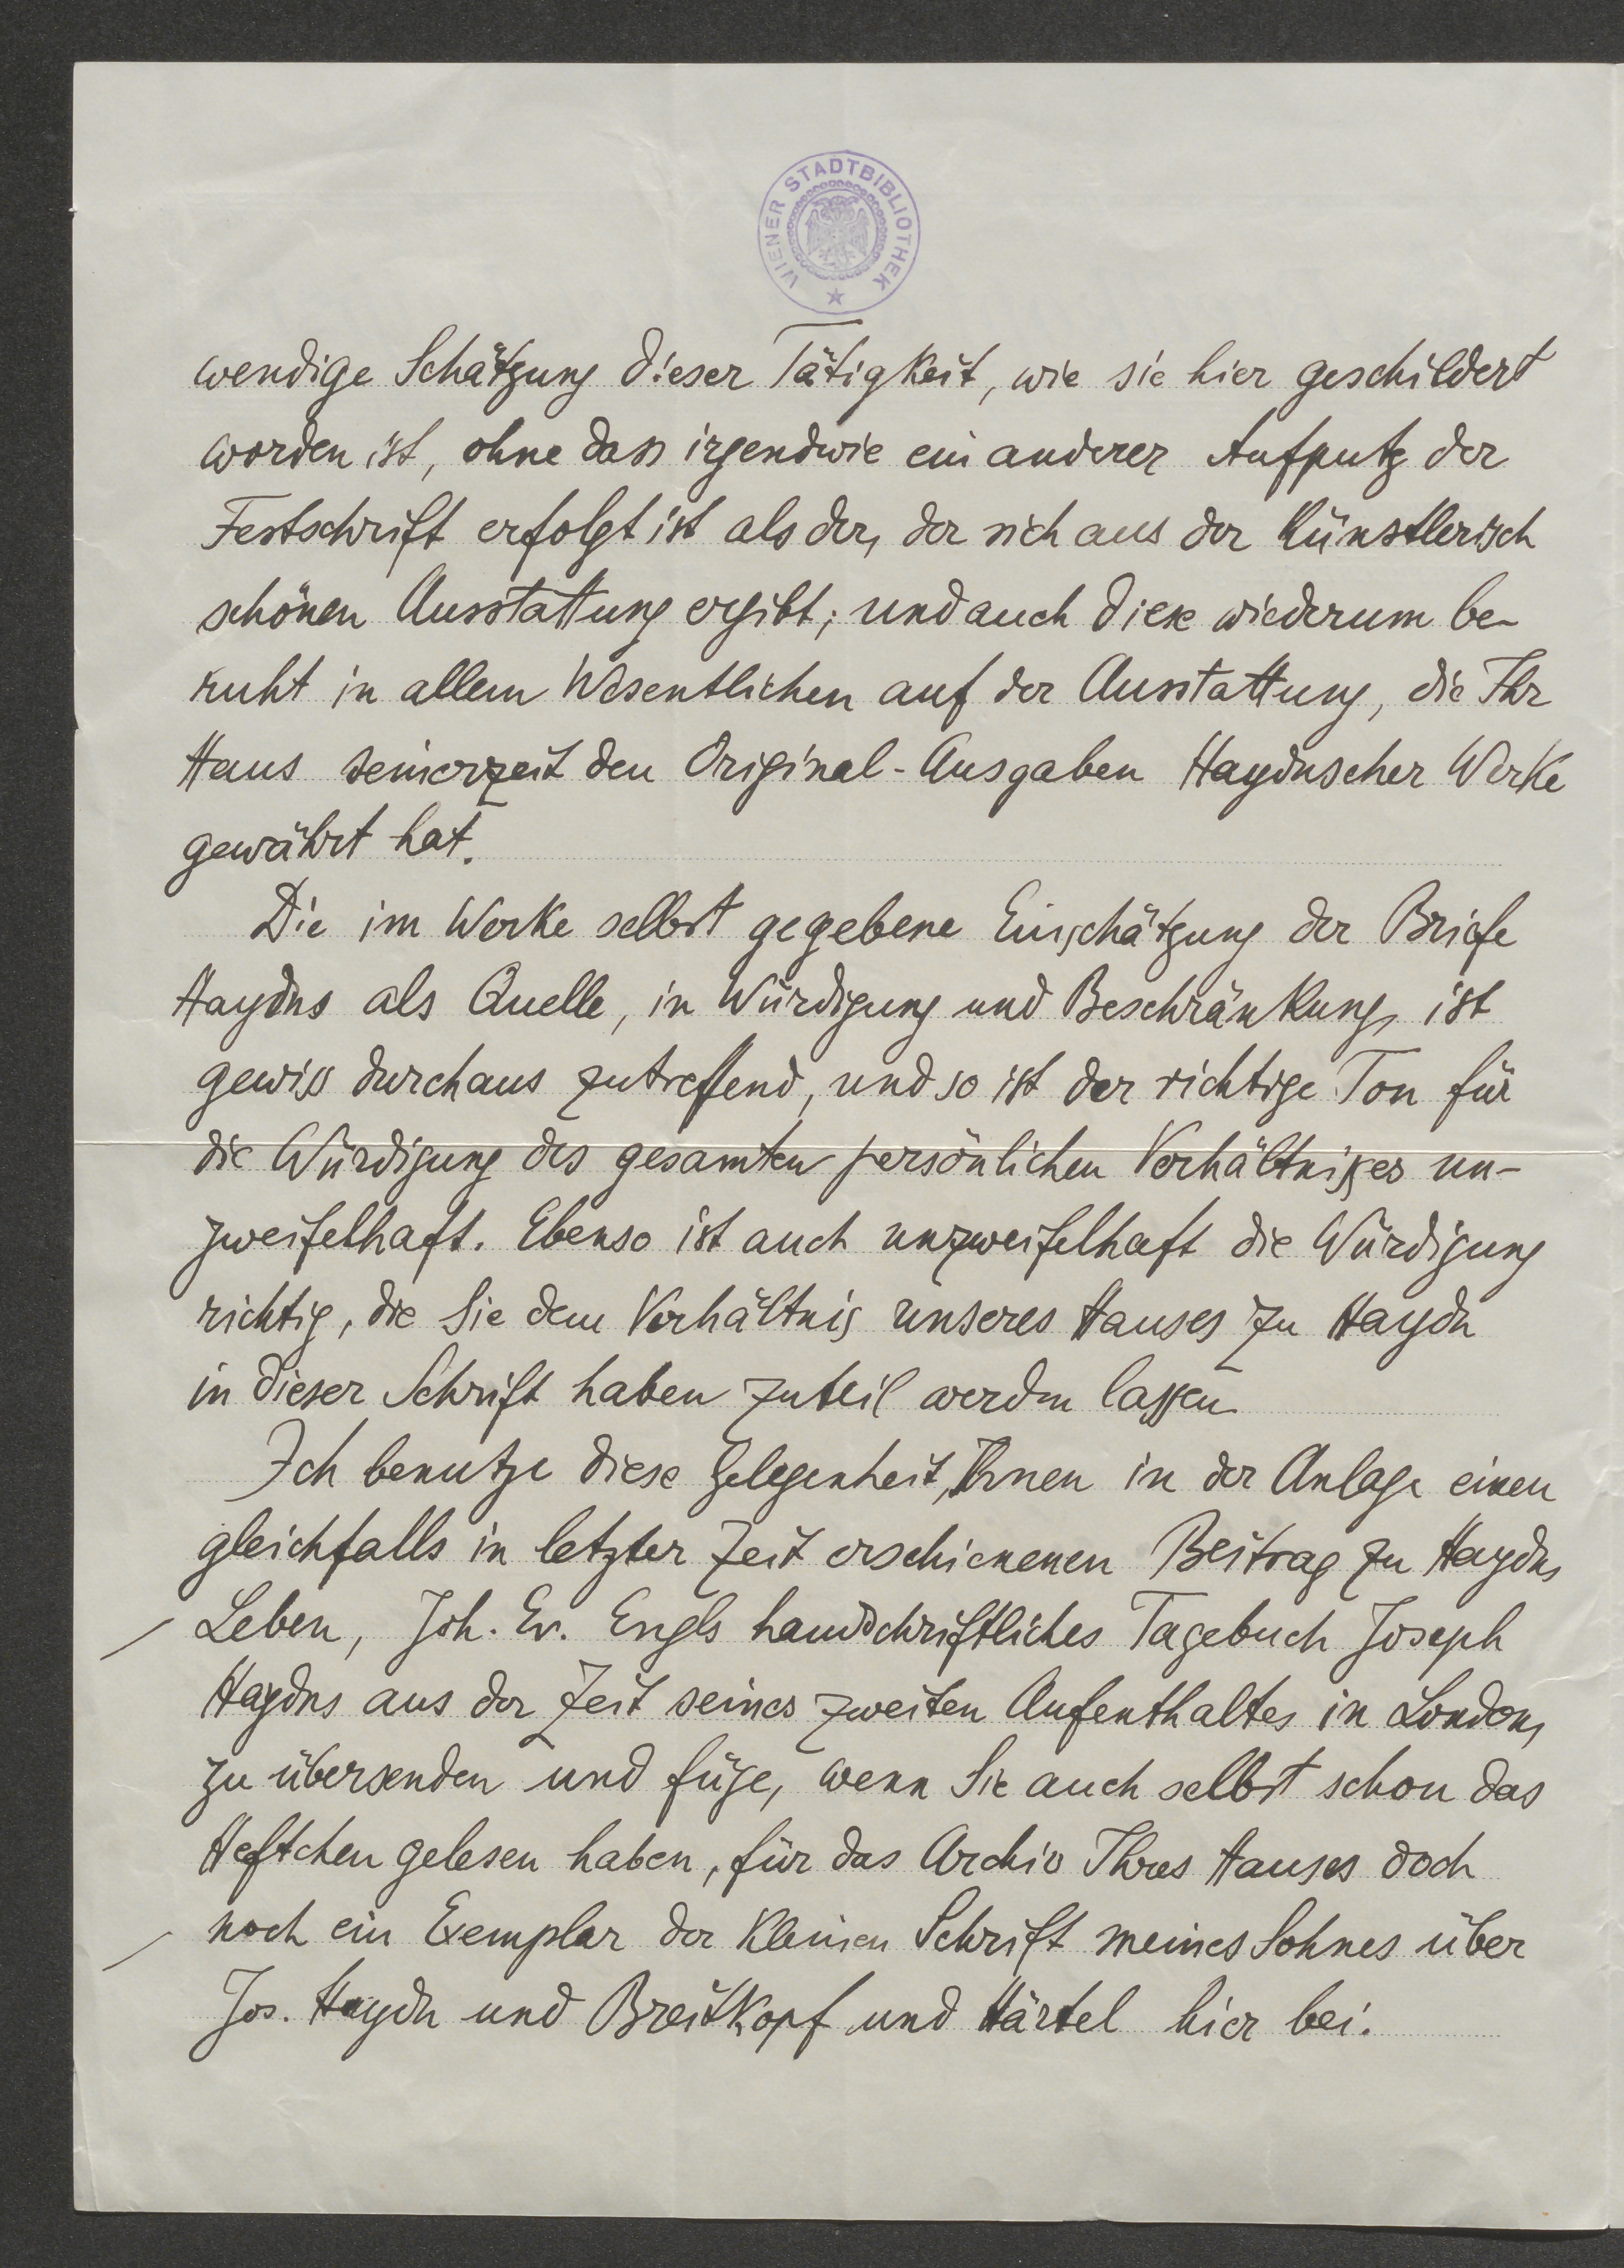 WIENER STADTBIBLIOTHEK
wendige Schätzung dieser Tätigkeit, wie sie hier geschildert
worden ist, ohne dass irgendwie ein anderer Aufputz der
Festschrift erfolgt ist als der, der sich aus der künstlerisch
schönen Ausstattung ergibt; und auch diese wiederum be-
ruht in allem Wesentlichen auf der Ausstattung, die Ihr
Haus seinerzeit den Original-Ausgaben Haydnscher Werke
gewährt hat.
Die im Werke selbst gegebene Einschätzung der Briefe
Haydns als Quelle, in Würdigung und Beschränkung, ist
gewiss durchaus zutreffend, und so ist der richtige Ton für
die Würdigung des gesamten persönlichen Verhältnißes un-
zweifelhaft. Ebenso ist auch unzweifelhaft die Würdigung
richtig, die Sie dem Verhältnis unseres Hauses zu Haydn
in dieser Schrift haben zuteil werden lassen.
Ich benutze diese Gelegenheit, Ihnen in der Anlage einen
gleichfalls in letzter Zeit erschienenen Beitrag zu Haydns
Leben, Joh. Ev. Engls handschriftliches Tagebuch Joseph
Haydns aus der Zeit seines zweiten Aufenthaltes in London,
zu übersenden und füge, wenn Sie auch selbst schon das
Heftchen gelesen haben, für das Archiv Ihres Hauses doch
noch ein Exemplar der kleinen Schrift meines Sohnes über
Jos. Haydn und Breitkopf und Härtel hier bei.